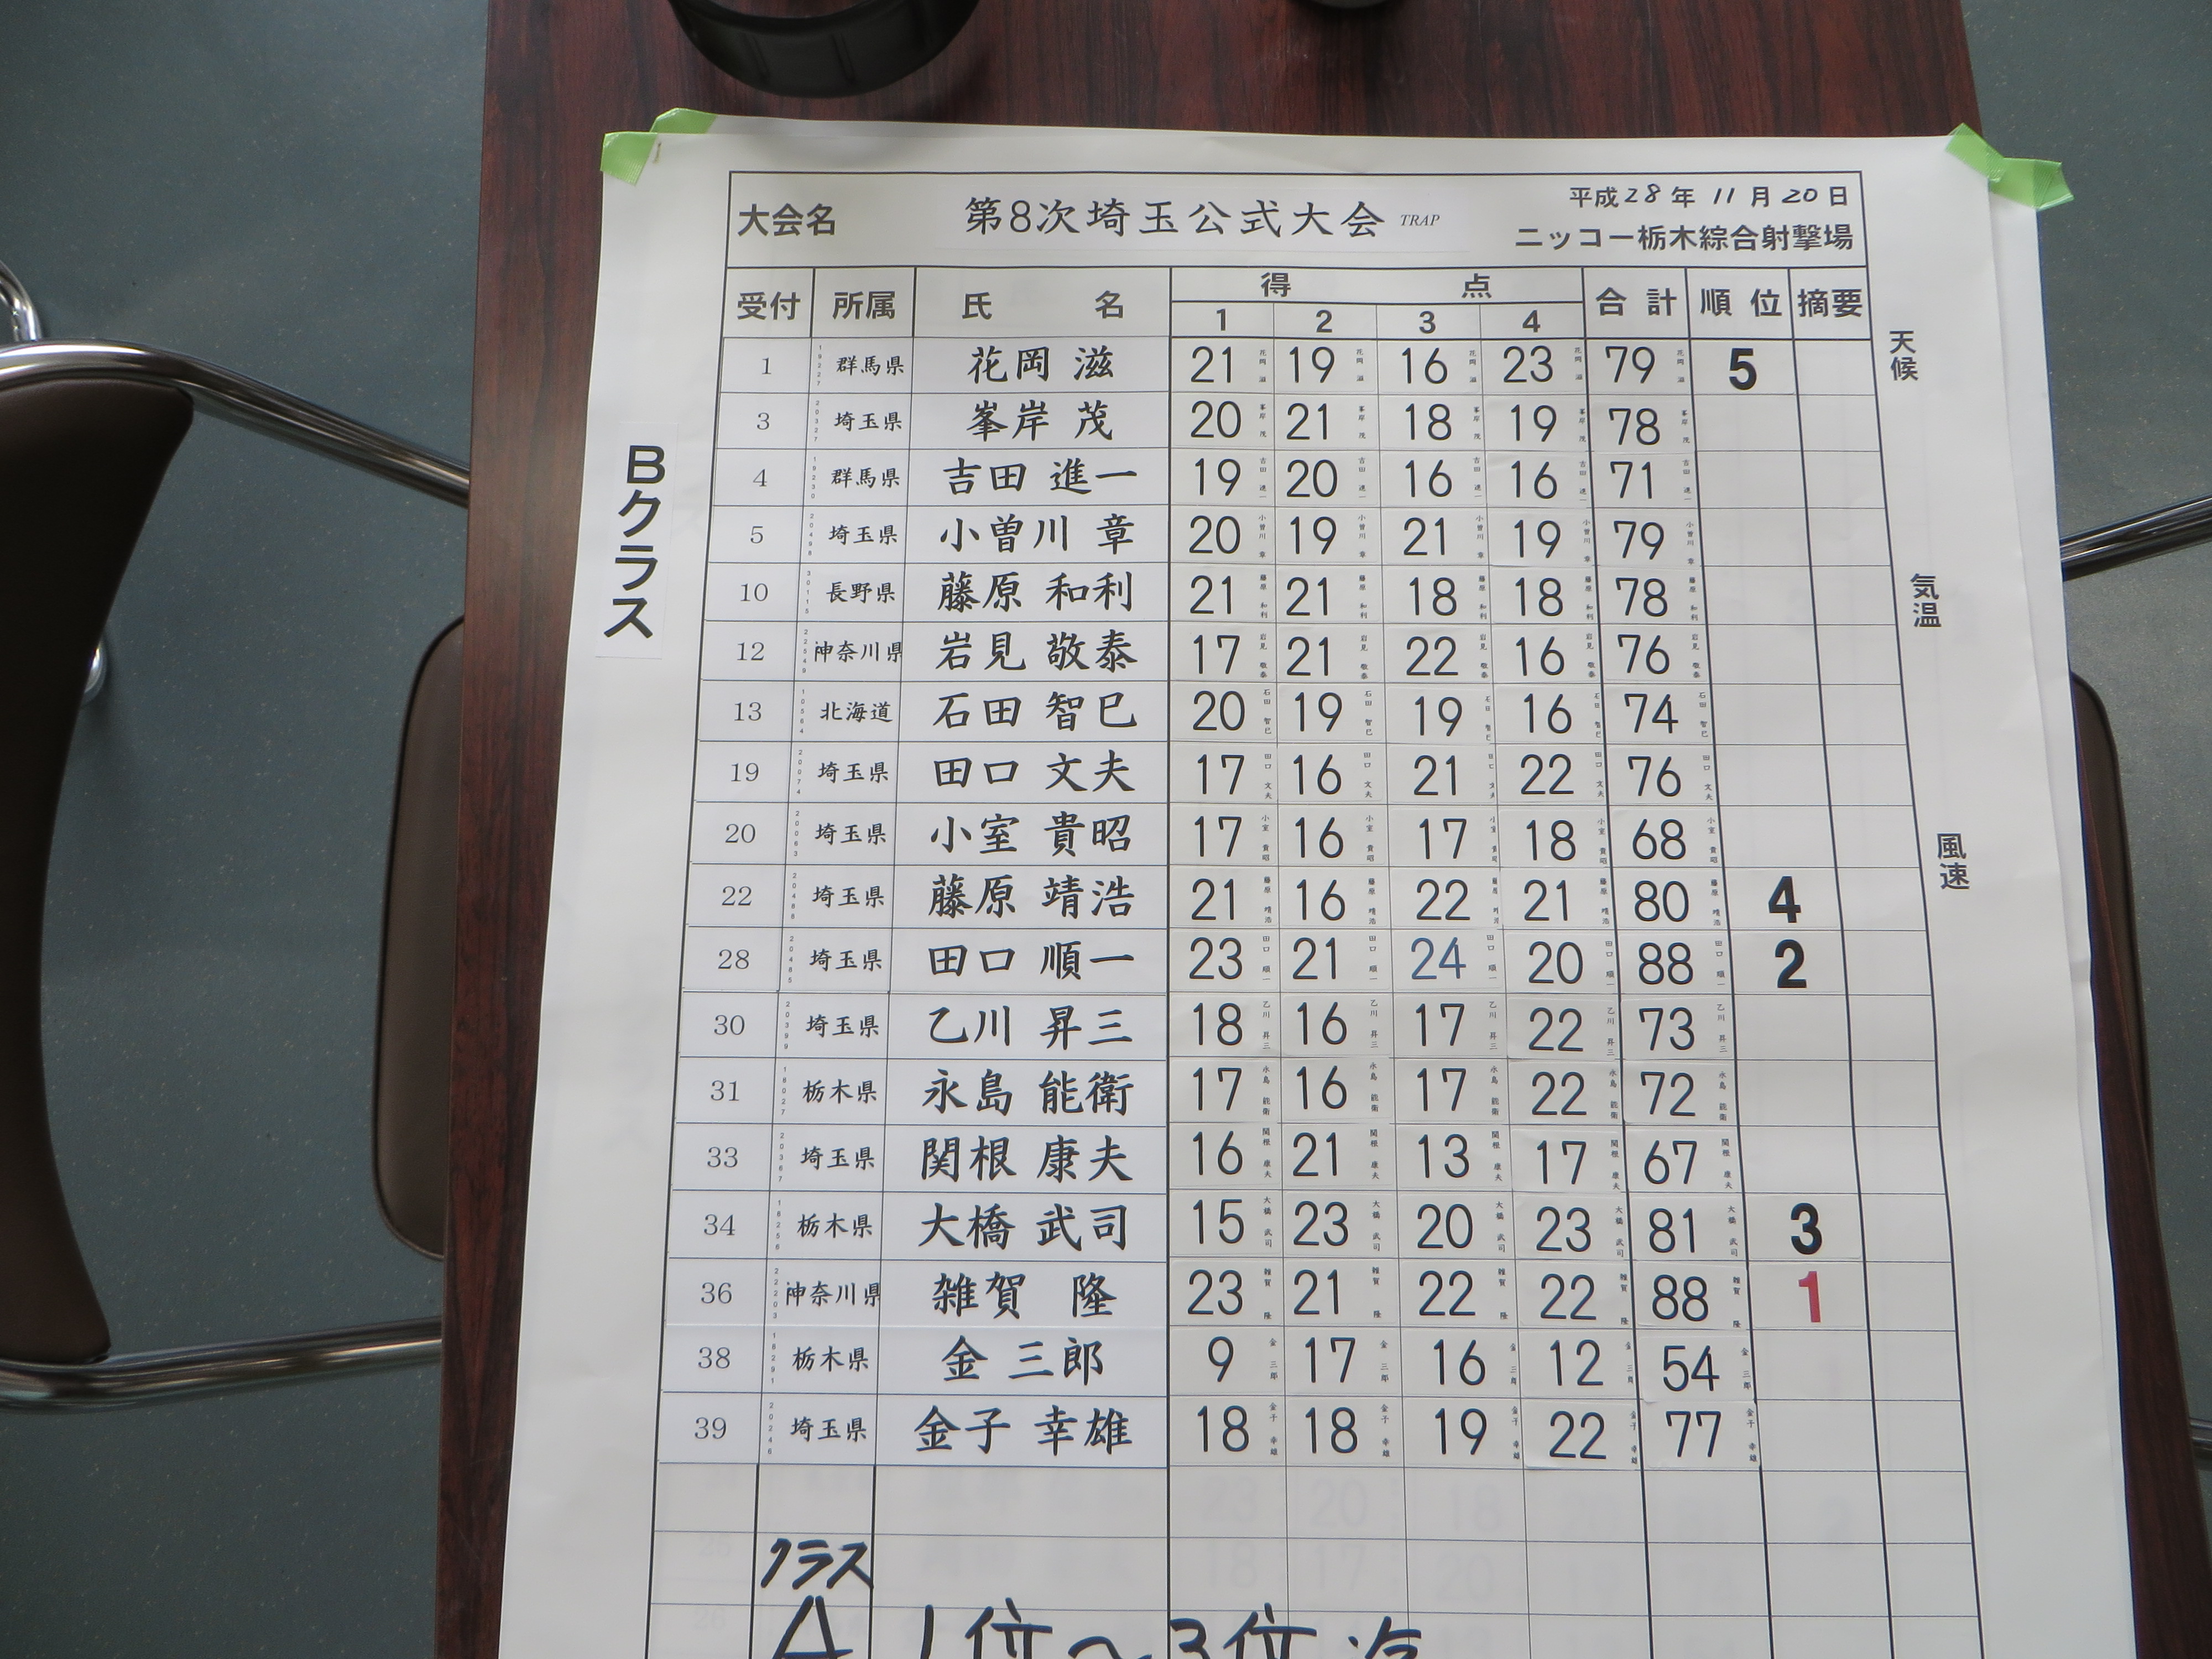 大会名 第8次埼玉公式大会 TRAP 平成28年 11月20日
ニッコー栃木綜合射撃場
受付 所属 氏名 得点 合計 順位 摘要
1 2 3 4
Bクラス
天候
気温
風速
1 群馬県 花岡 滋 21 19 16 23 79 5
3 埼玉県 峯岸 茂 20 21 18 19 78
4 群馬県 吉田 進一 19 20 16 16 71
5 埼玉県 小曽川 章 20 19 21 19 79
10 長野県 藤原 和利 21 21 18 18 78
12 神奈川県 岩見 敬泰 17 21 22 16 76
13 北海道 石田 智巳 20 19 19 16 74
19 埼玉県 田口 文夫 17 16 21 22 76
20 埼玉県 小室 貴昭 17 16 17 18 68
22 埼玉県 藤原 靖浩 21 16 22 21 80 4
28 埼玉県 田口 順一 23 21 24 20 88 2
30 埼玉県 乙川 昇三 18 16 17 22 73
31 栃木県 永島 能衛 17 16 17 22 72
33 埼玉県 関根 康夫 16 21 13 17 67
34 栃木県 大橋 武司 15 23 20 23 81 3
36 神奈川県 雑賀 隆 23 21 22 22 88 1
38 栃木県 金 三郎 9 17 16 12 54
39 埼玉県 金子 幸雄 18 18 19 22 77
クラス
A 1位～3位